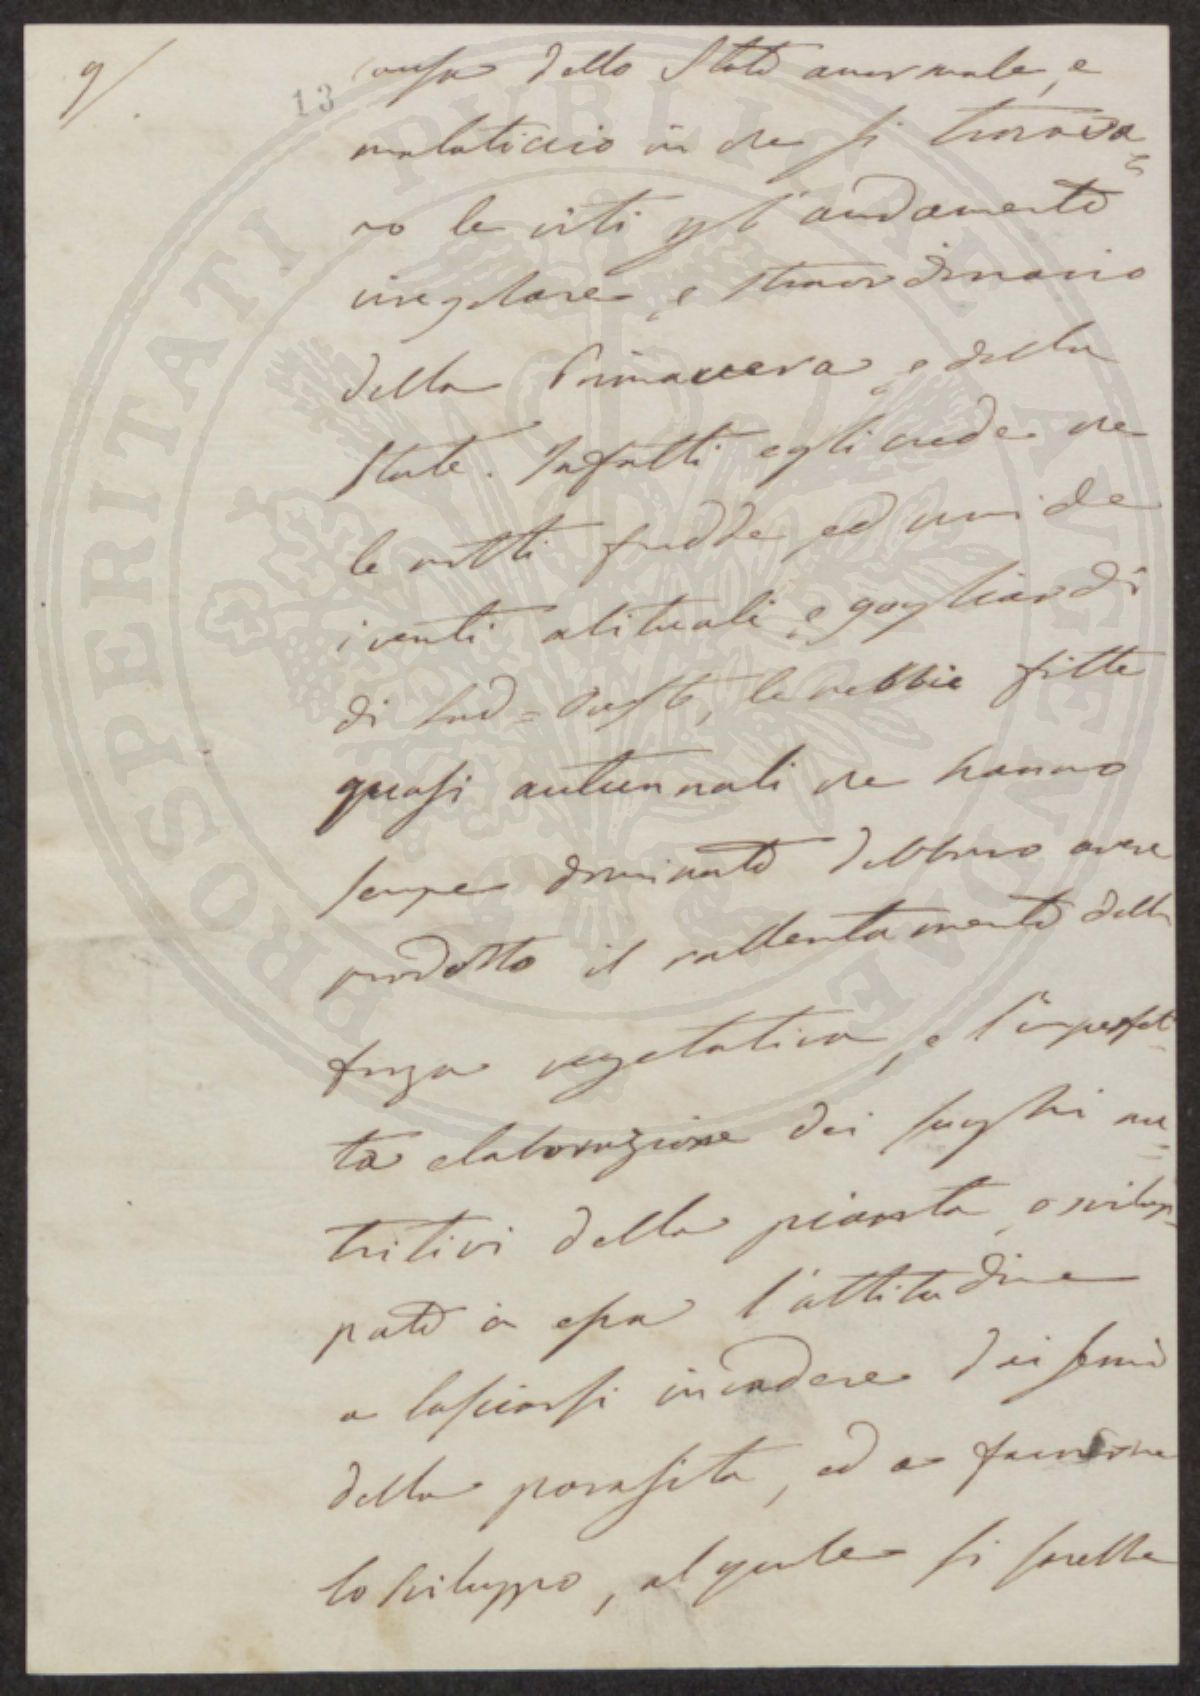 9/
13
causa dello Stato anormale, e
malaticcio in che si trovava=
no le viti pel l'andamento
irregolare, e straordinario
della Primavera, e della
State. Infatti egli crede che
le notti fredde, ed umide
i venti abituali, e gagliardi
di Sud=Ouest, le nebbie fitte
quasi autunnali che hanno
sempre dominato debbono avere
prodotto il rallentamento della
forza vegetativa, e l'imperfet=
ta elaborazione dei sughi nu=
tritivi della pianta, e svilup=
pato in essa l'attitudine
a lasciarsi invadere dai semi
della parasita, ed a favorirne
lo sviluppo, al quale si sarebbe
PROSPERITATI PUBLICAE AUGENDAE